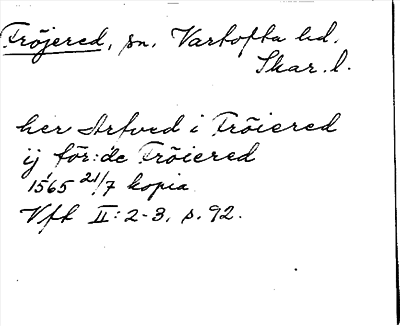 Fröjered, sn. Vartofta hd.
Skar. l.
her Arfved i Fröiered
ij för:de Fröiered
1565 21/7 kopia
Vfk II: 2-3, s. 92.